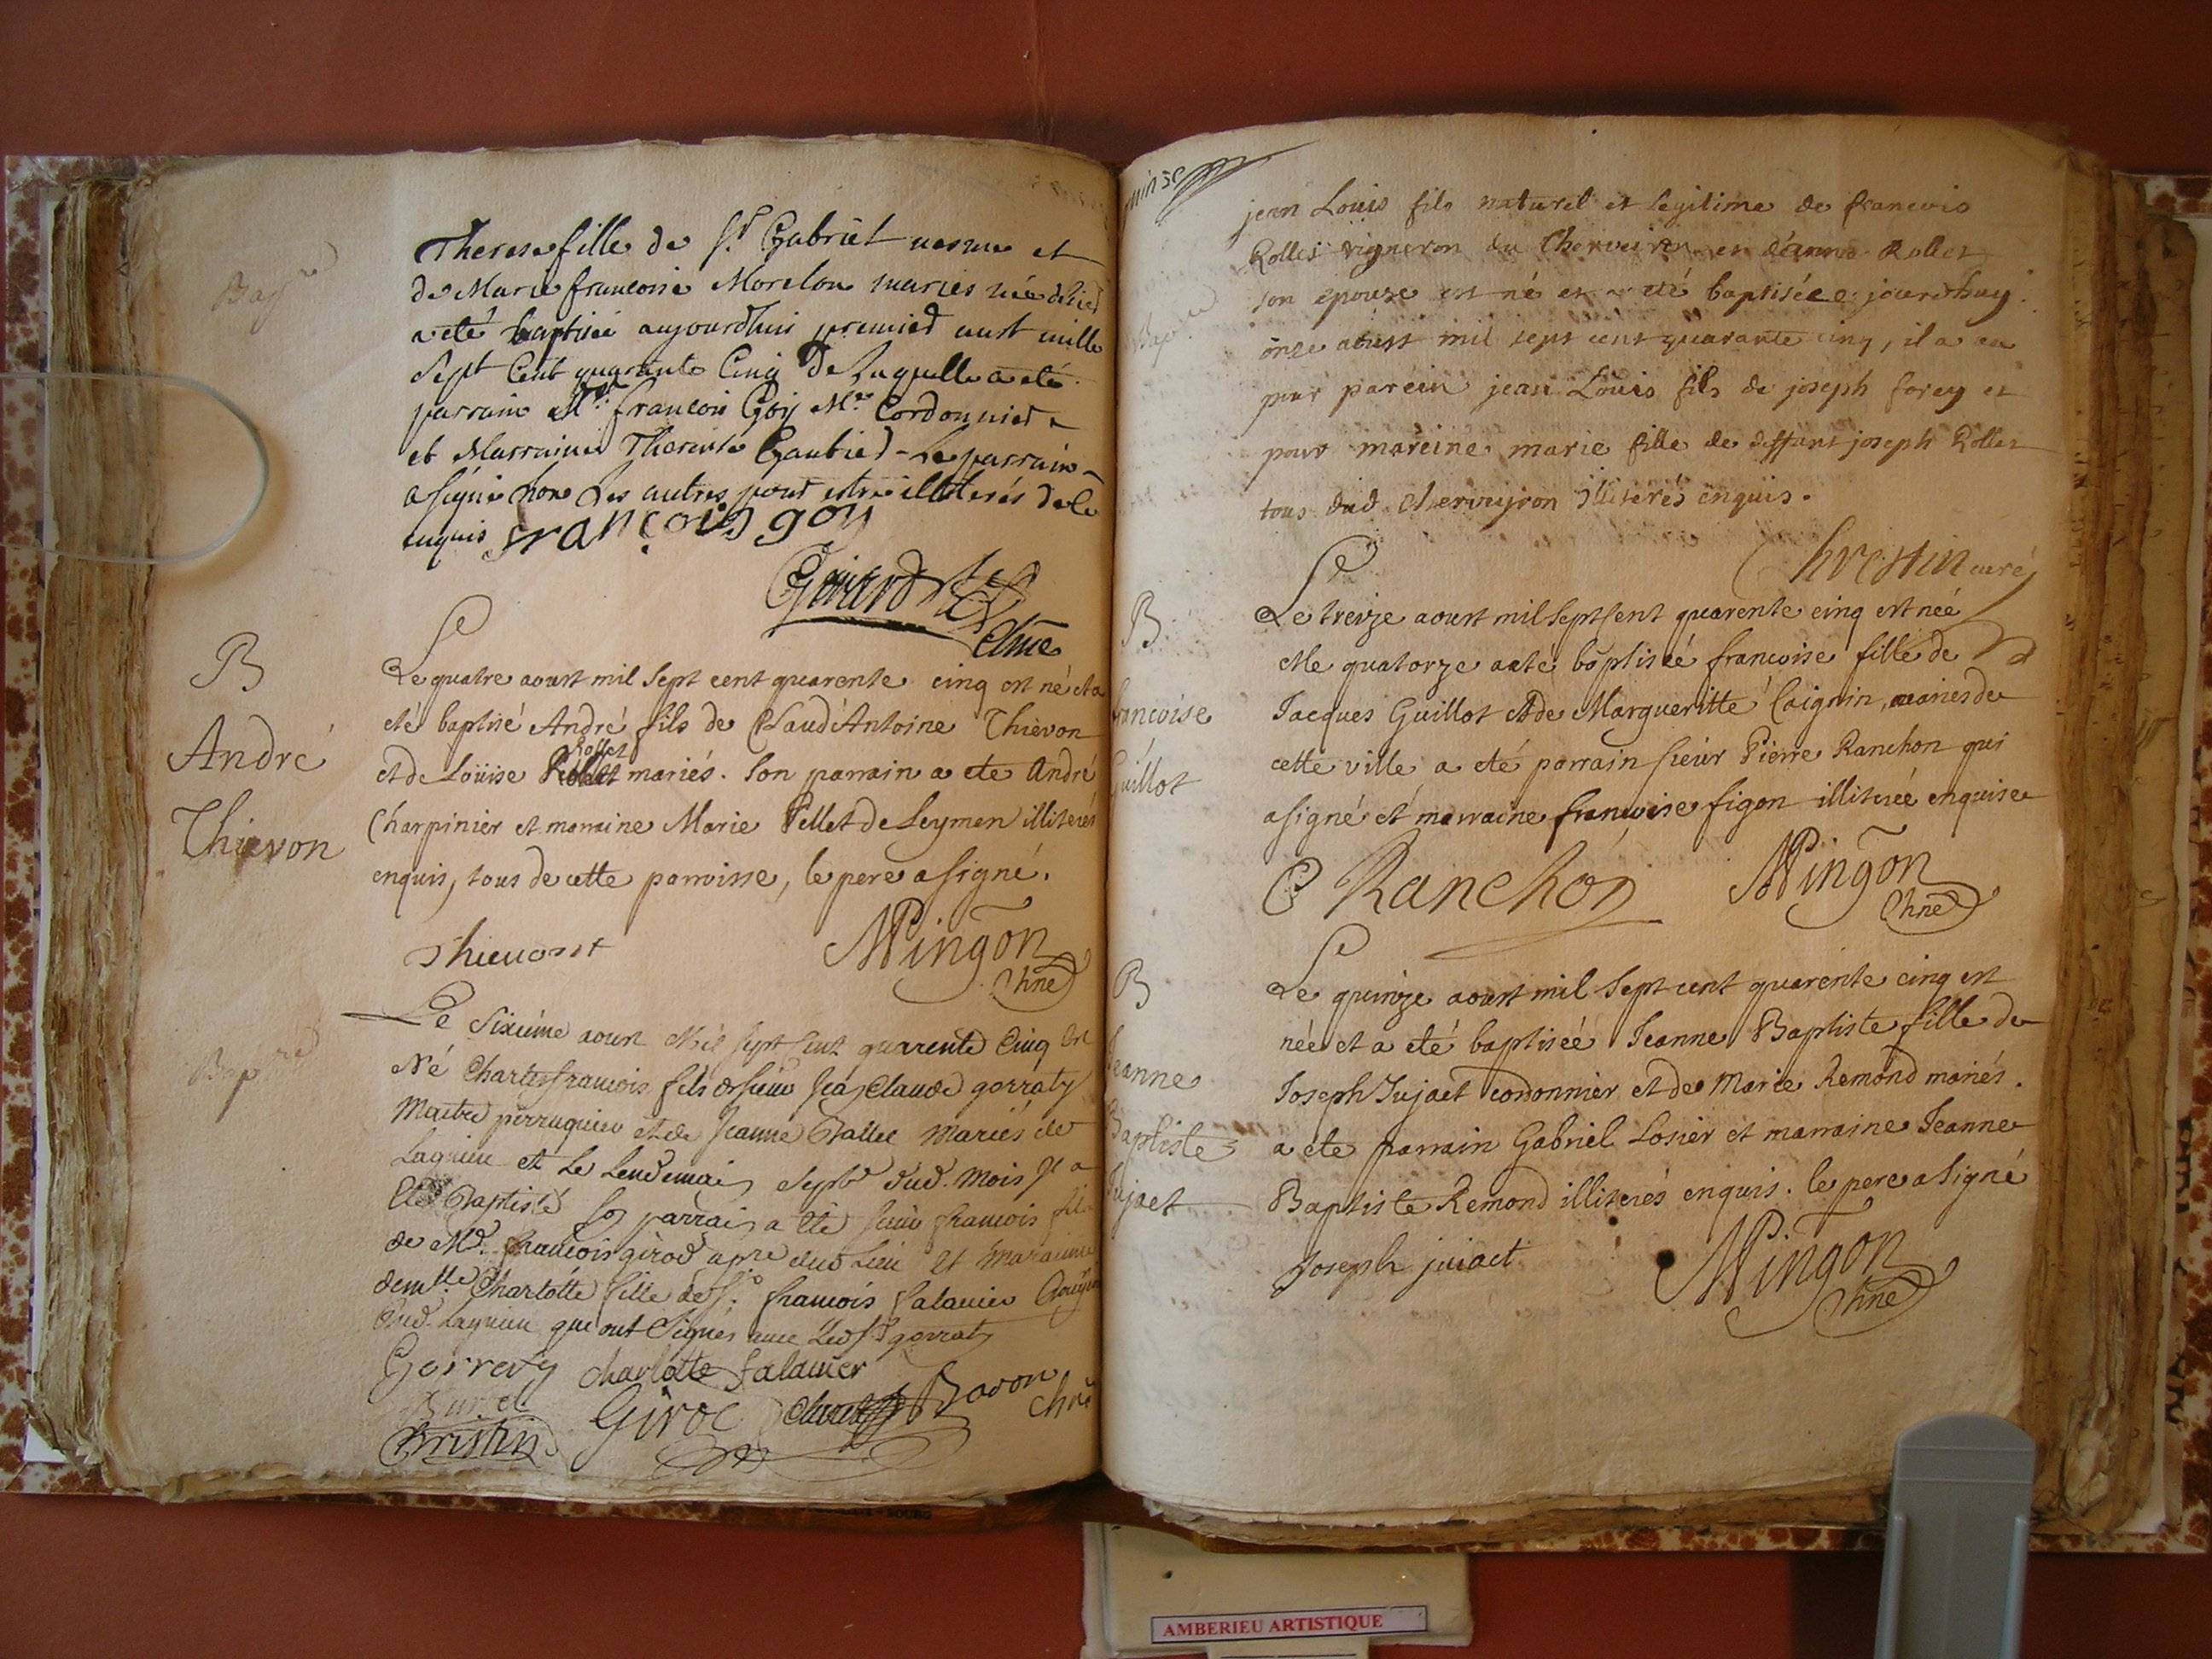 Bap.re
Therese fille de S.r Gabriel et
de Marie francoise Morelon mariés née dhier
a eté baptisée aujourdhuy premier aust mille
Sept Cent quarante Cinq de Laquelle a eté
parrain M.r francois Goy M.e Cordonnier
et Marraine Therese Gautier Le parrain
a signé non Les autres pour estre illiterés de ce
enquis françois goy
Girard
Chne
B
André
Thievon
Le quatre aoust mil sept cent quarente cinq est né et a
eté baptisé André fils de Claude Antoine Thievon
et de Loüise Rollet mariés. Son parrain a ete André
Charpinier et marraine Marie Pellet de Leymen illiterés
enquis, tous de cette parroisse, le pere a signé.
Thieuont
Mingon
Chne
Bap.re
Le Sixiéme aoust Mil sept Cent quarente Cinq Est
Né Charles francois fils de sieur Jean Claude gorraty
Maitre perruquier et de Jeanne Mariés de
Lagnieu et Le Lendemain Sept.e dud. Mois Il a
Eté Baptisé son parrain a Eté sieur francois fils
de M.r francois girod dud Lieu Et Maraine
dem.lle Charlotte fille de S.r francois falavier
dud. Lagnieu qui ont Signés avec Led S.r gorraty
Gorraty Charlotte falavier
Christin Girod Baron
Chne
jean Louis fils naturel et legitime de francois
Rollet vigneron du Cherveyron et d'anne Rollet
son epouze est né et a eté baptisée jourdhuy
onze aoust mil sept cent quarante cinq, il a eu
pour parein jean Louis fils de joseph forey et
pour mareine marie fille de deffunt joseph Rollet
tous dud Cherveyron illiterés enquis.
Bap.re
Chrestin curé
B
francoise
Guillot
Le treize aoust mil sept sent quarente cinq est née
et le quatorze a eté baptisée francoise fille de
Jacques Guillot et de Margueritte Caignin, mariés de
cette ville a eté parrain sieur Pierre Ranchon qui
a signé et marraine francoise figon illiterée enquise
P Ranchon
Mingon
Chne
B
Jeanne
Baptiste
Jujaet
Le quinze aoust mil sept cent quarente cinq est
née et a eté baptisée Jeanne Baptiste fille de
Joseph Jujaet cordonnier et de Marie Remond mariés.
a ete parrain Gabriel Losier et marraine Jeanne
Baptiste Remond illiterés enquis. le pere a signé
Joseph juiaet
Mingon
Chne
AMBERIEU ARTISTIQUE